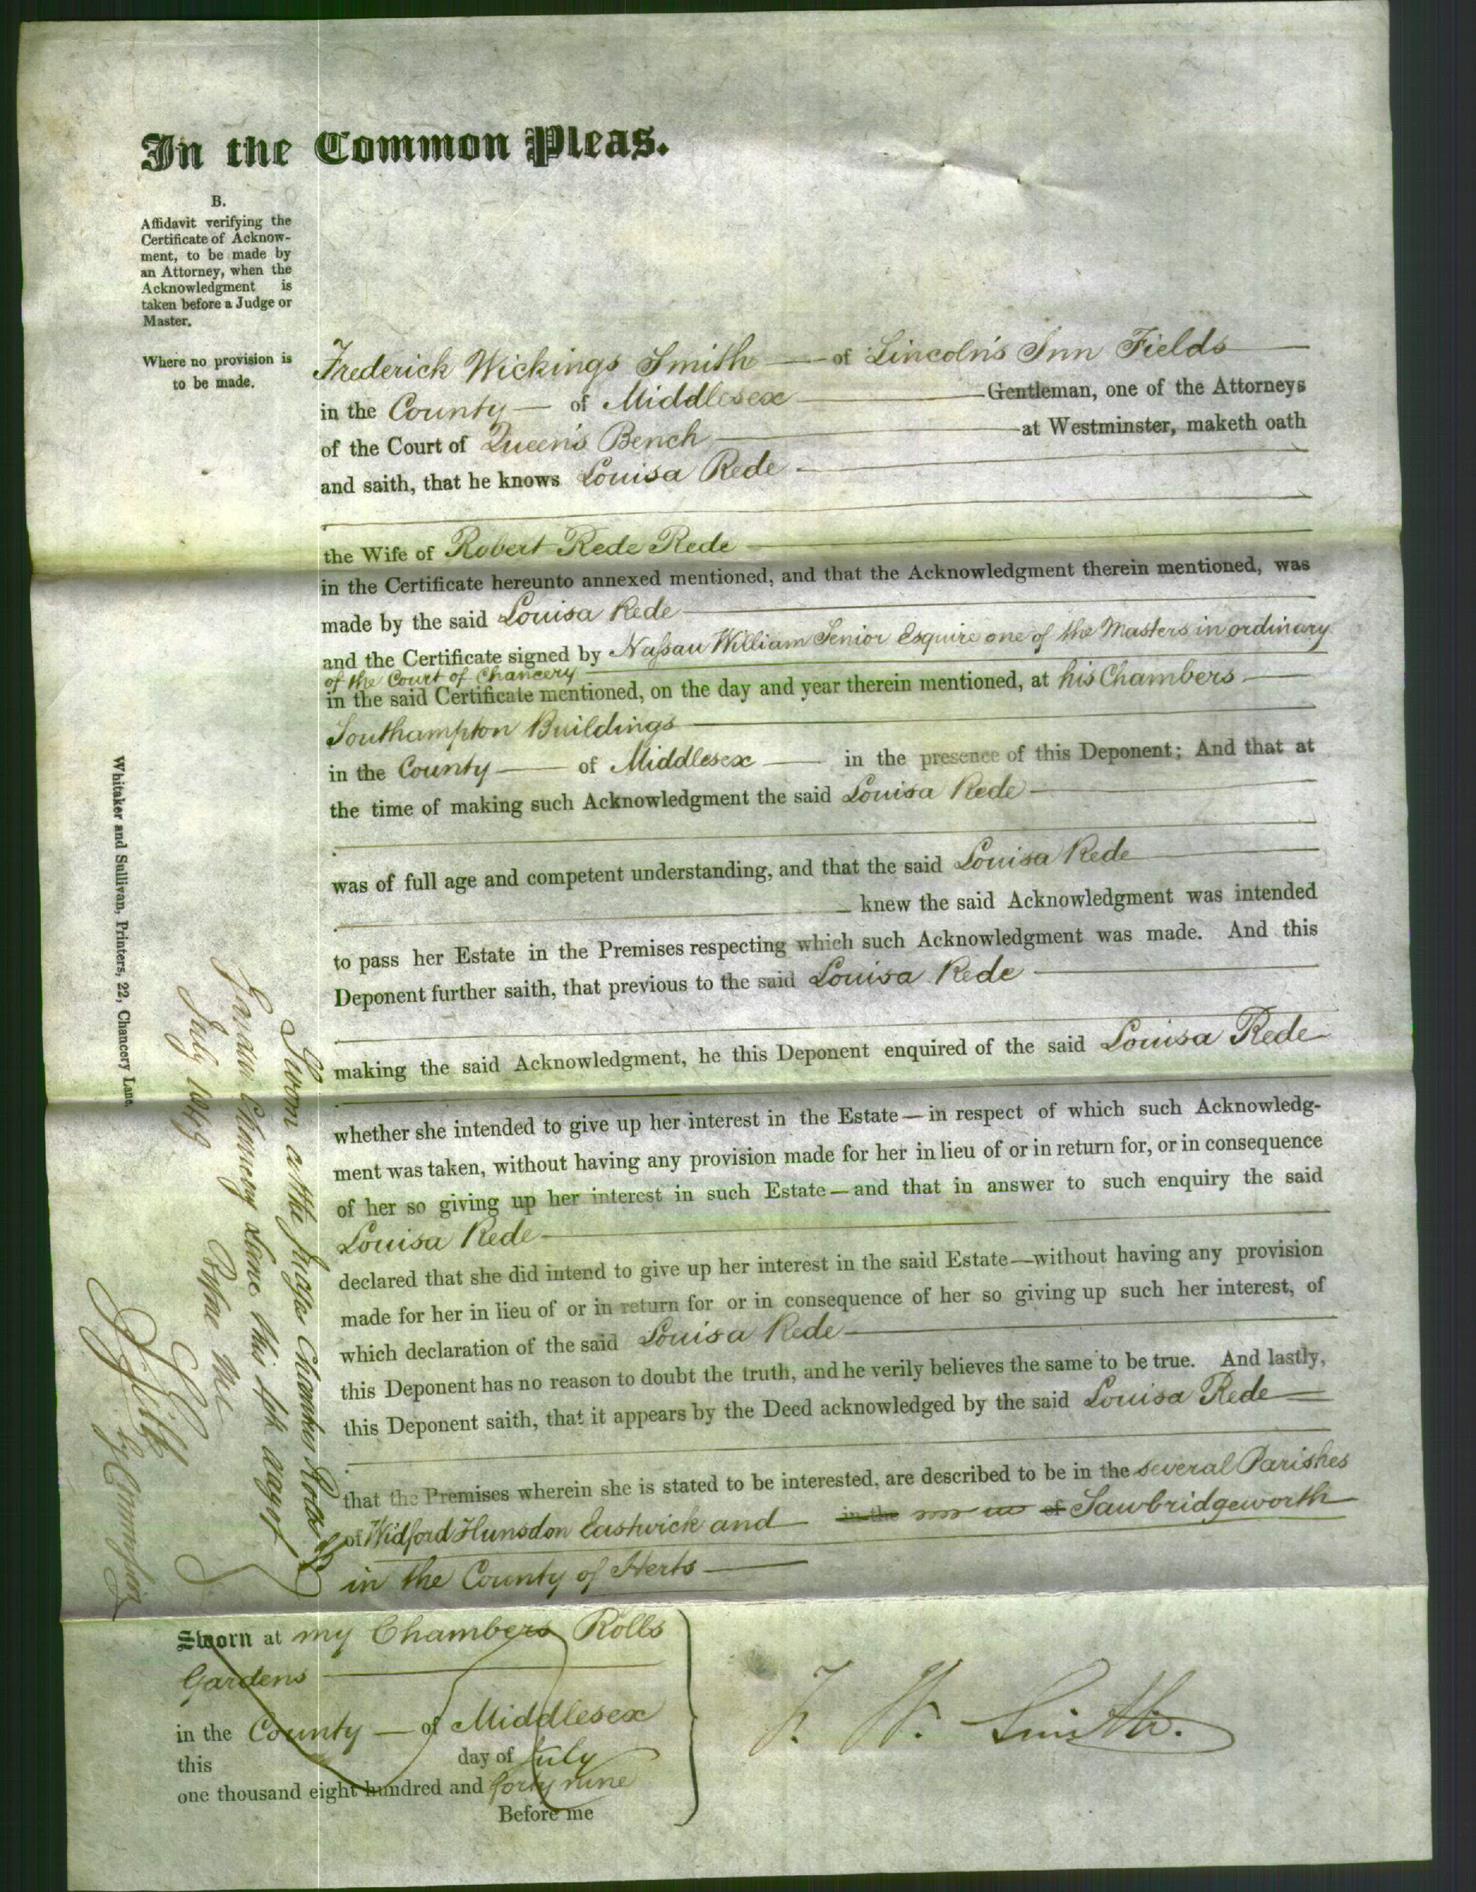 In the Common Pleas.
B.
Affidavit verifying the
Certificate of Acknow-
ment, to be made by
an Attorney, when the
Acknowledgment is
taken before a Judge or
Master.
Where no provision is
to be made.
Frederick Wickings Smith of Lincoln's Inn Fields
in the County of Middlesex Gentleman, one of the Attorneys
of the Court of Queen's Bench at Westminster, maketh oath
and saith, that he knows Louisa Rede
the Wife of Robert Rede Rede
in the Certificate hereunto annexed mentioned, and that the Acknowledgment therein mentioned, was
made by the said Louisa Rede
and the Certificate signed by Nassau William Senior Esquire one of the Masters in ordinary
of the Court of Chancery
in the said Certificate mentioned, on the day and year therein mentioned, at his Chambers
Southampton Buildings
in the County of Middlesex in the presence of this Deponent; And that at
the time of making such Acknowledgment the said Louisa Rede
was of full age and competent understanding, and that the said Louisa Rede
knew the said Acknowledgment was intended
to pass her Estate in the Premises respecting which such Acknowledgment was made. And this
Deponent further saith, that previous to the said Louisa Rede
making the said Acknowledgment, he this Deponent enquired of the said Louisa Rede
whether she intended to give up her interest in the Estate—in respect of which such Acknowledg-
ment was taken, without having any provision made for her in lieu of or in return for, or in consequence
of her so giving up her interest in such Estate—and that in answer to such enquiry the said
Louisa Rede
declared that she did intend to give up her interest in the said Estate—without having any provision
made for her in lieu of or in return for or in consequence of her so giving up such her interest, of
which declaration of the said Louisa Rede
this Deponent has no reason to doubt the truth, and he verily believes the same to be true. And lastly,
this Deponent saith, that it appears by the Deed acknowledged by the said Louisa Rede
that the Premises wherein she is stated to be interested, are described to be in the several Parishes
of Widford Hunsdon Eastwick and in the of Sawbridgeworth
in the County of Herts
Sworn at my Chambers Rolls
Gardens
in the County of Middlesex
this day of July
one thousand eight hundred and forty nine
Before me
F. W. Smith.
Sworn at the Judges Chambers Rolls
Garden Chancery Lane this day of
July 1849
Before me
Whitaker and Sullivan, Printers, 22, Chancery Lane.